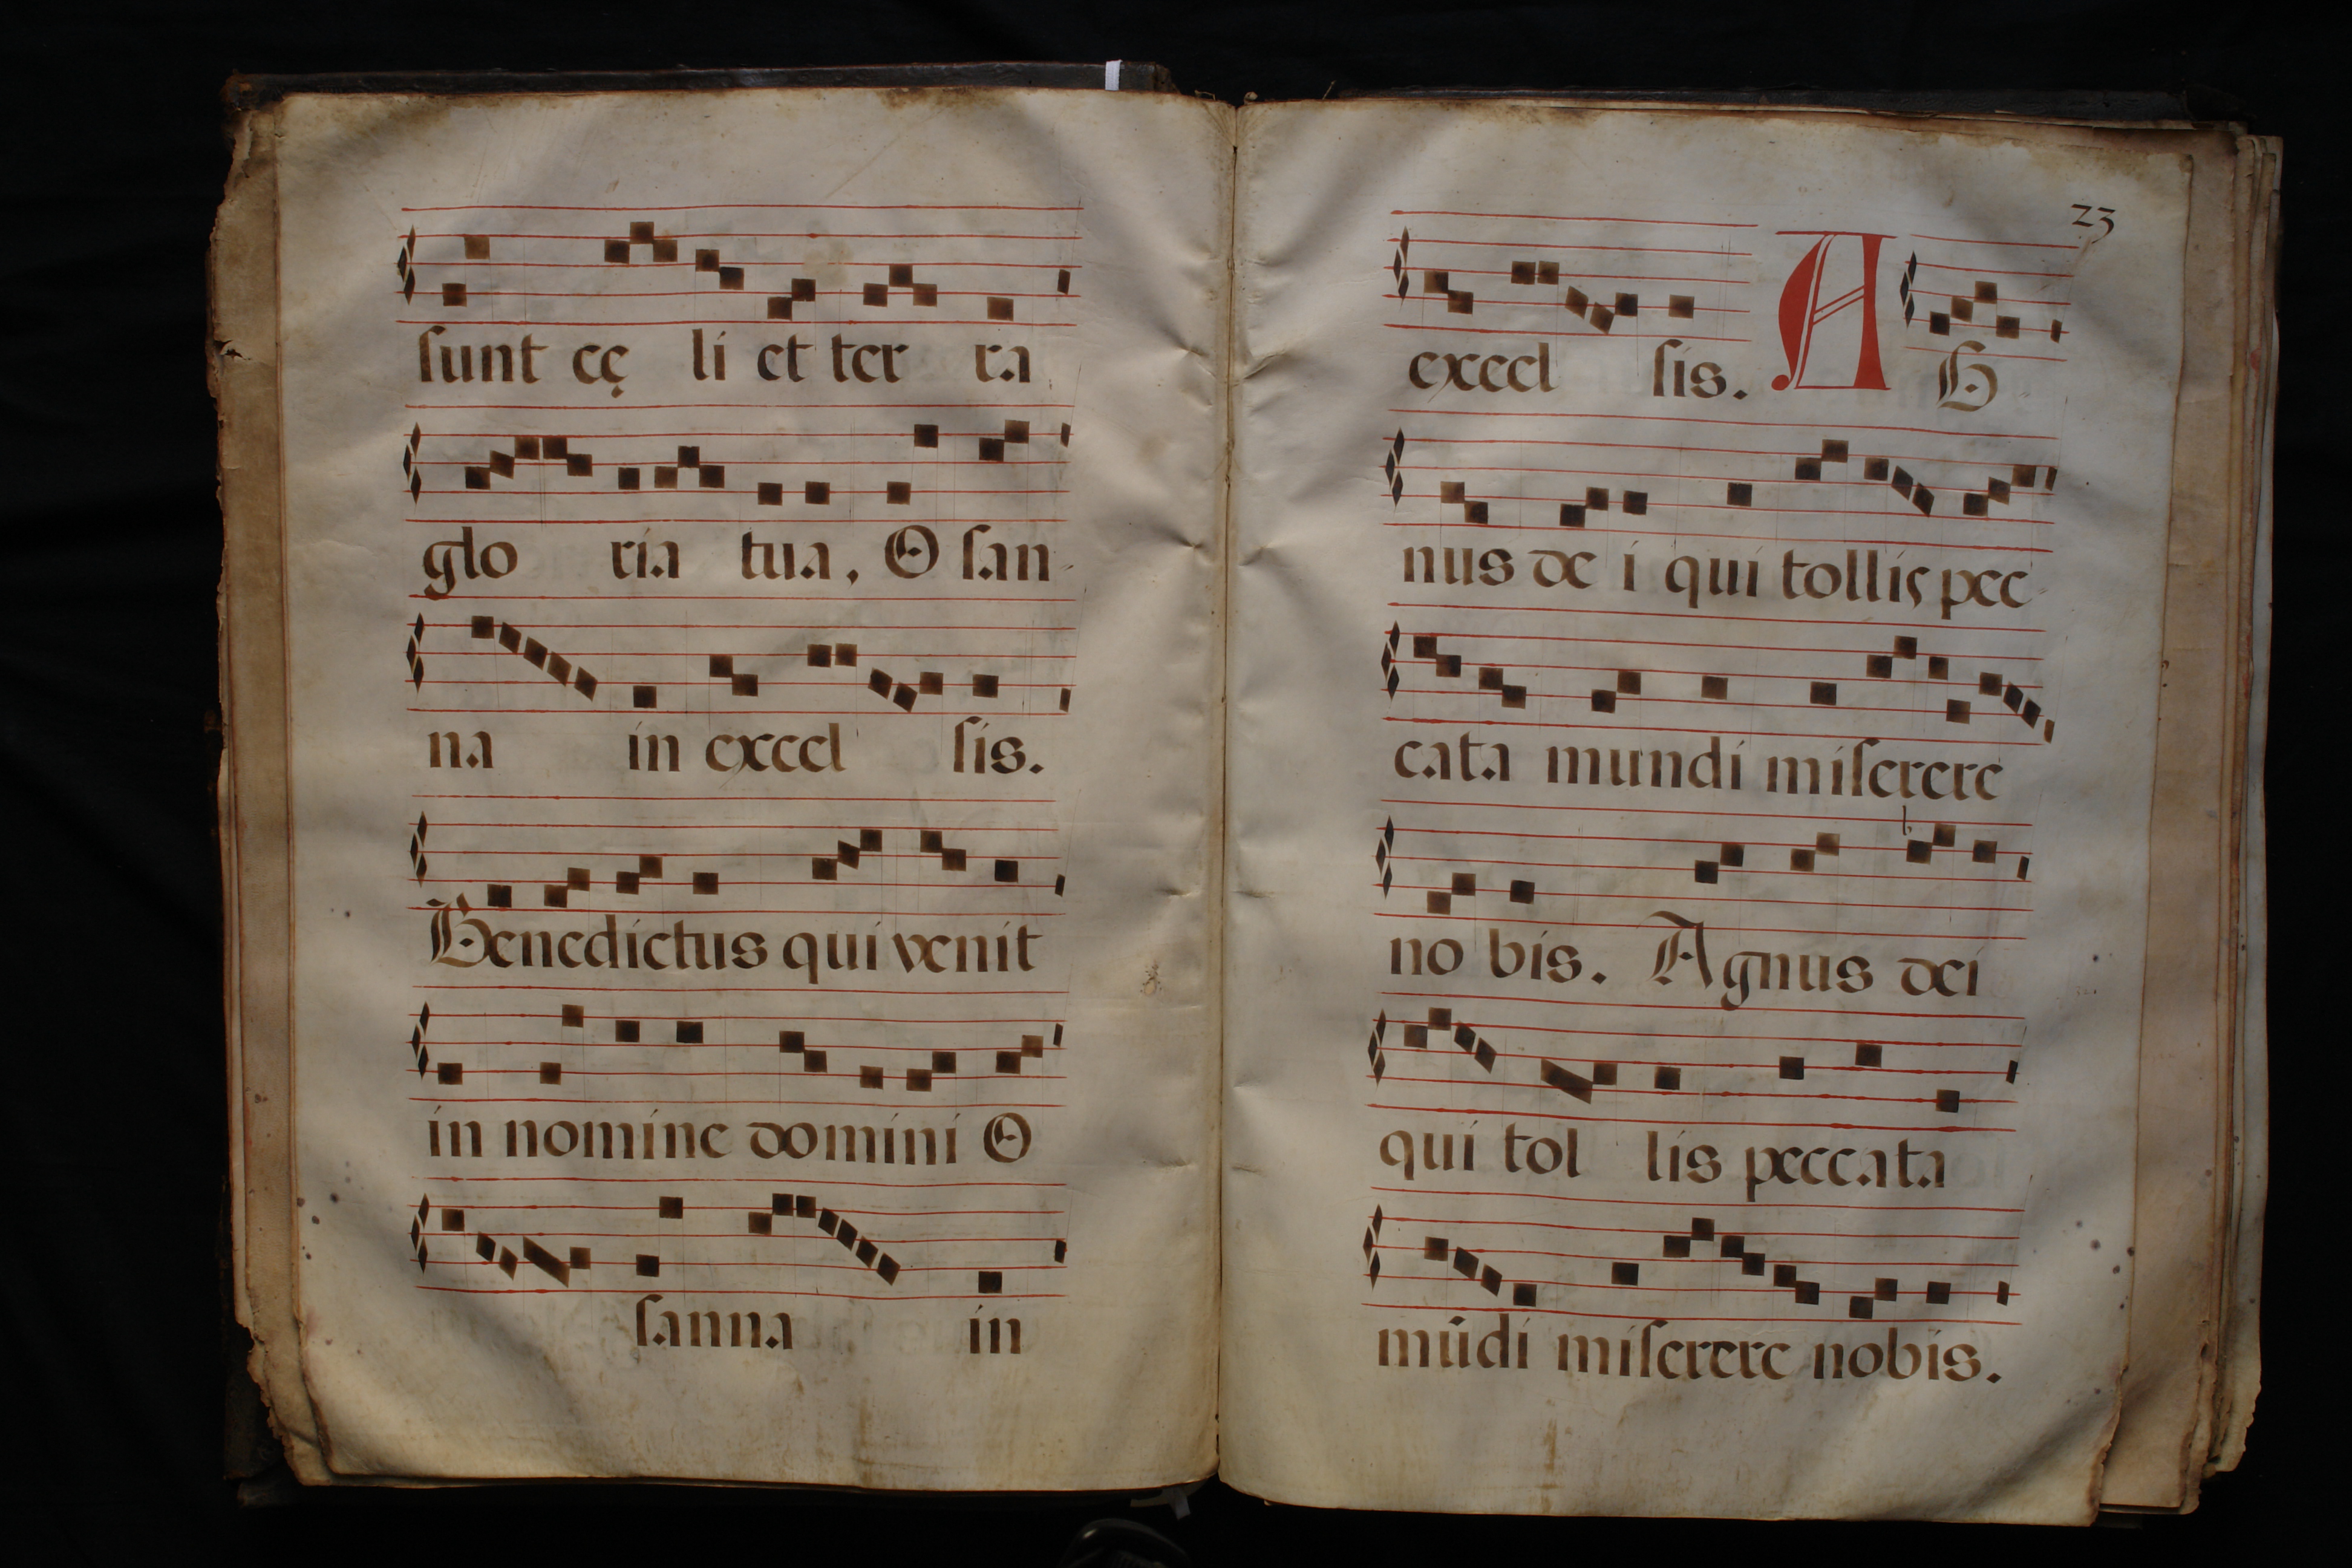 sunt cę li et ter ra
glo ria tua, O san-
na in excel sis.
Benedictus qui venit
in nomine domini O
sanna in
23
excel sis. A G
nus de i qui tollis pec-
cata mundi miserere
no bis. Agnus dei
qui tol lis peccata
mūdi miserere nobis.